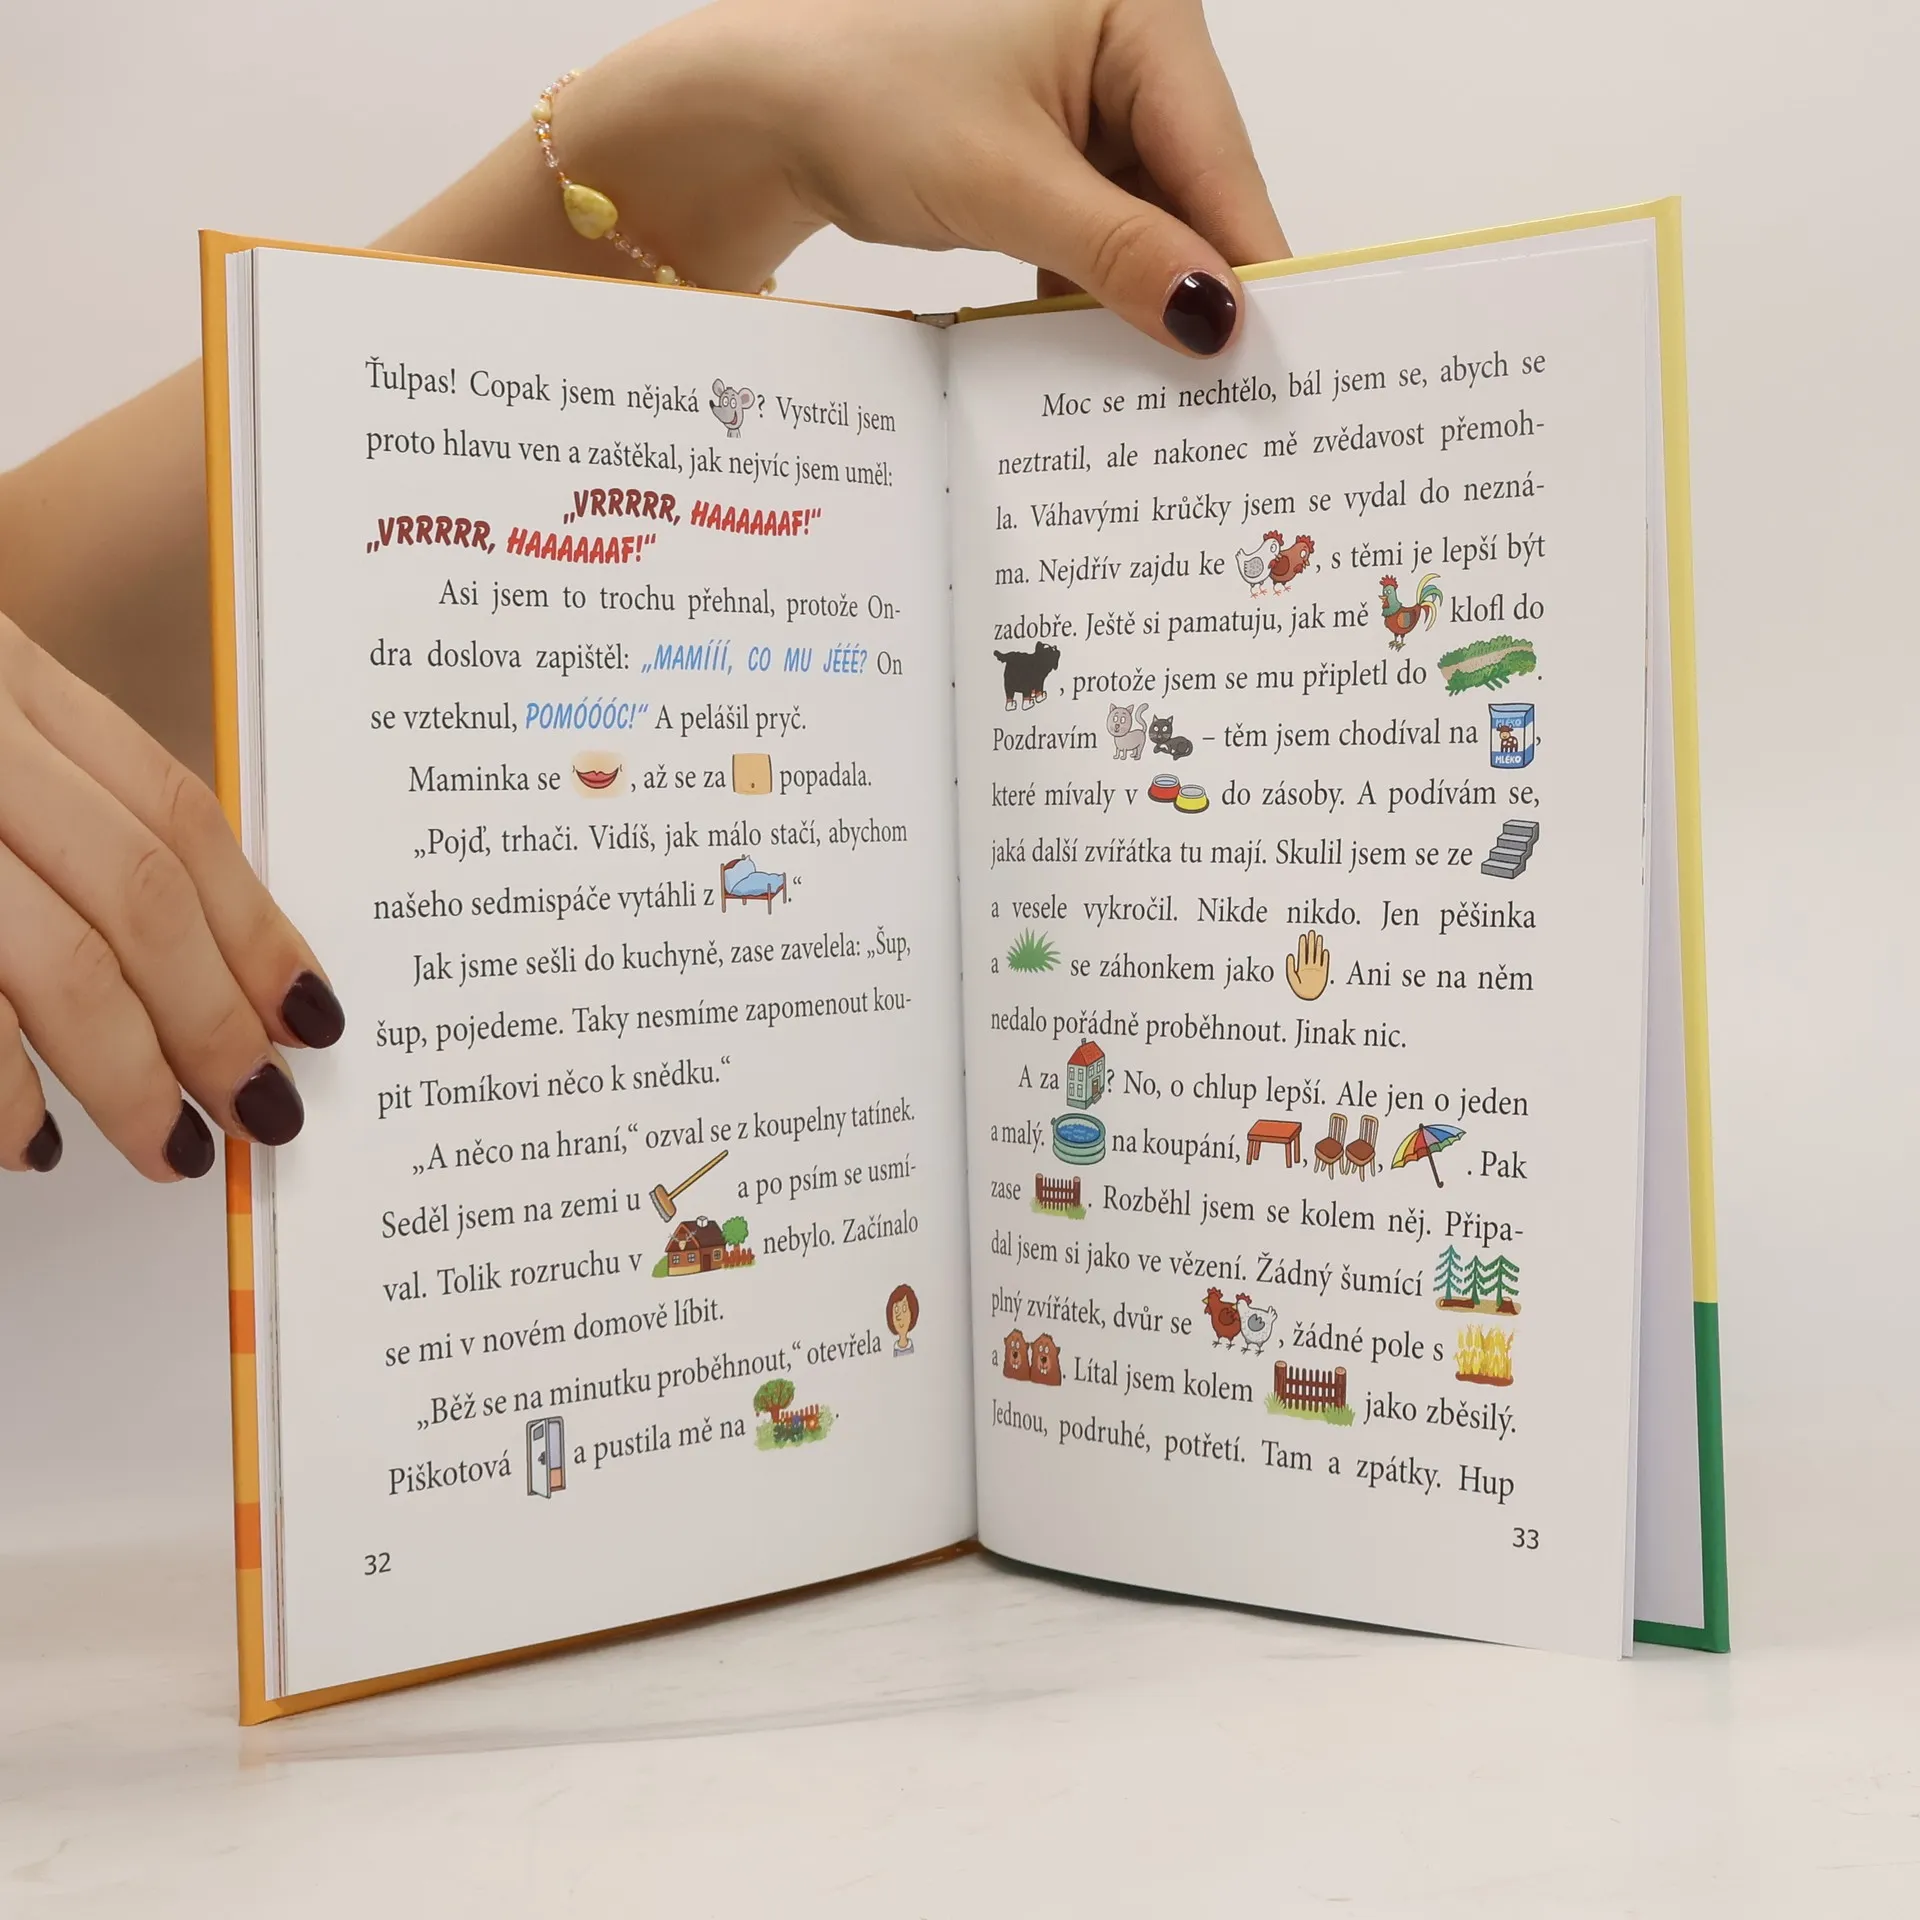 Ťulpas! Copak jsem nějaká ? Vystrčil jsem
proto hlavu ven a zaštěkal, jak nejvíc jsem uměl:
„VRRRRR, HAAAAAAF!“
„VRRRRR, HAAAAAAF!“
Asi jsem to trochu přehnal, protože On-
dra doslova zapištěl: „MAMÍÍÍ, CO MU JÉÉÉ? On
se vzteknul, POMÓÓÓC!“ A pelášil pryč.
Maminka se , až se za popadala.
„Pojď, trhači. Vidíš, jak málo stačí, abychom
našeho sedmispáče vytáhli z .“
Jak jsme sešli do kuchyně, zase zavelela: „Šup,
šup, pojedeme. Taky nesmíme zapomenout kou-
pit Tomíkovi něco k snědku.“
„A něco na hraní,“ ozval se z koupelny tatínek.
Seděl jsem na zemi u a po psím se usmí-
val. Tolik rozruchu v nebylo. Začínalo
se mi v novém domově líbit.
„Běž se na minutku proběhnout,“ otevřela
Piškotová a pustila mě na .
32
Moc se mi nechtělo, bál jsem se, abych se
neztratil, ale nakonec mě zvědavost přemoh-
la. Váhavými krůčky jsem se vydal do nezná-
ma. Nejdřív zajdu ke , s těmi je lepší být
zadobře. Ještě si pamatuju, jak mě klofl do
, protože jsem se mu připletl do .
Pozdravím – těm jsem chodíval na MLÉKO MLÉKO ,
které mívaly v do zásoby. A podívám se,
jaká další zvířátka tu mají. Skulil jsem se ze
a vesele vykročil. Nikde nikdo. Jen pěšinka
a se záhonkem jako . Ani se na něm
nedalo pořádně proběhnout. Jinak nic.
A za ? No, o chlup lepší. Ale jen o jeden
a malý. na koupání, , , . Pak
zase . Rozběhl jsem se kolem něj. Připa-
dal jsem si jako ve vězení. Žádný šumící
plný zvířátek, dvůr se , žádné pole s
a . Lítal jsem kolem jako zběsilý.
Jednou, podruhé, potřetí. Tam a zpátky. Hup
33